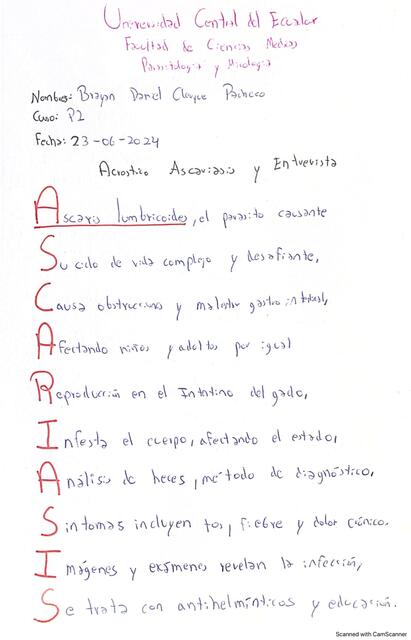 Universidad Central del Ecuador
Facultad de Ciencias Médicas
Parasitología y Micología
Nombre: Brayan Daniel Chuque Pacheco
Curso: P2
Fecha: 23-06-2024
Acrostico Ascariasis y Entrevista
Ascaris lumbricoides, el parasito causante
Su ciclo de vida complejo y desafiante,
Causa obstrucciones y malestar gastrointestinal,
Afectando niños y adultos por igual
Reproducción en el Intestino delgado,
Infesta el cuerpo, afectando el estado,
Análisis de heces, método de diagnóstico,
Sintomas incluyen tos, fiebre y dolor crónico.
Imágenes y exámenes revelan la infección,
Se trata con antihelmínticos y educación.
Scanned with CamScanner